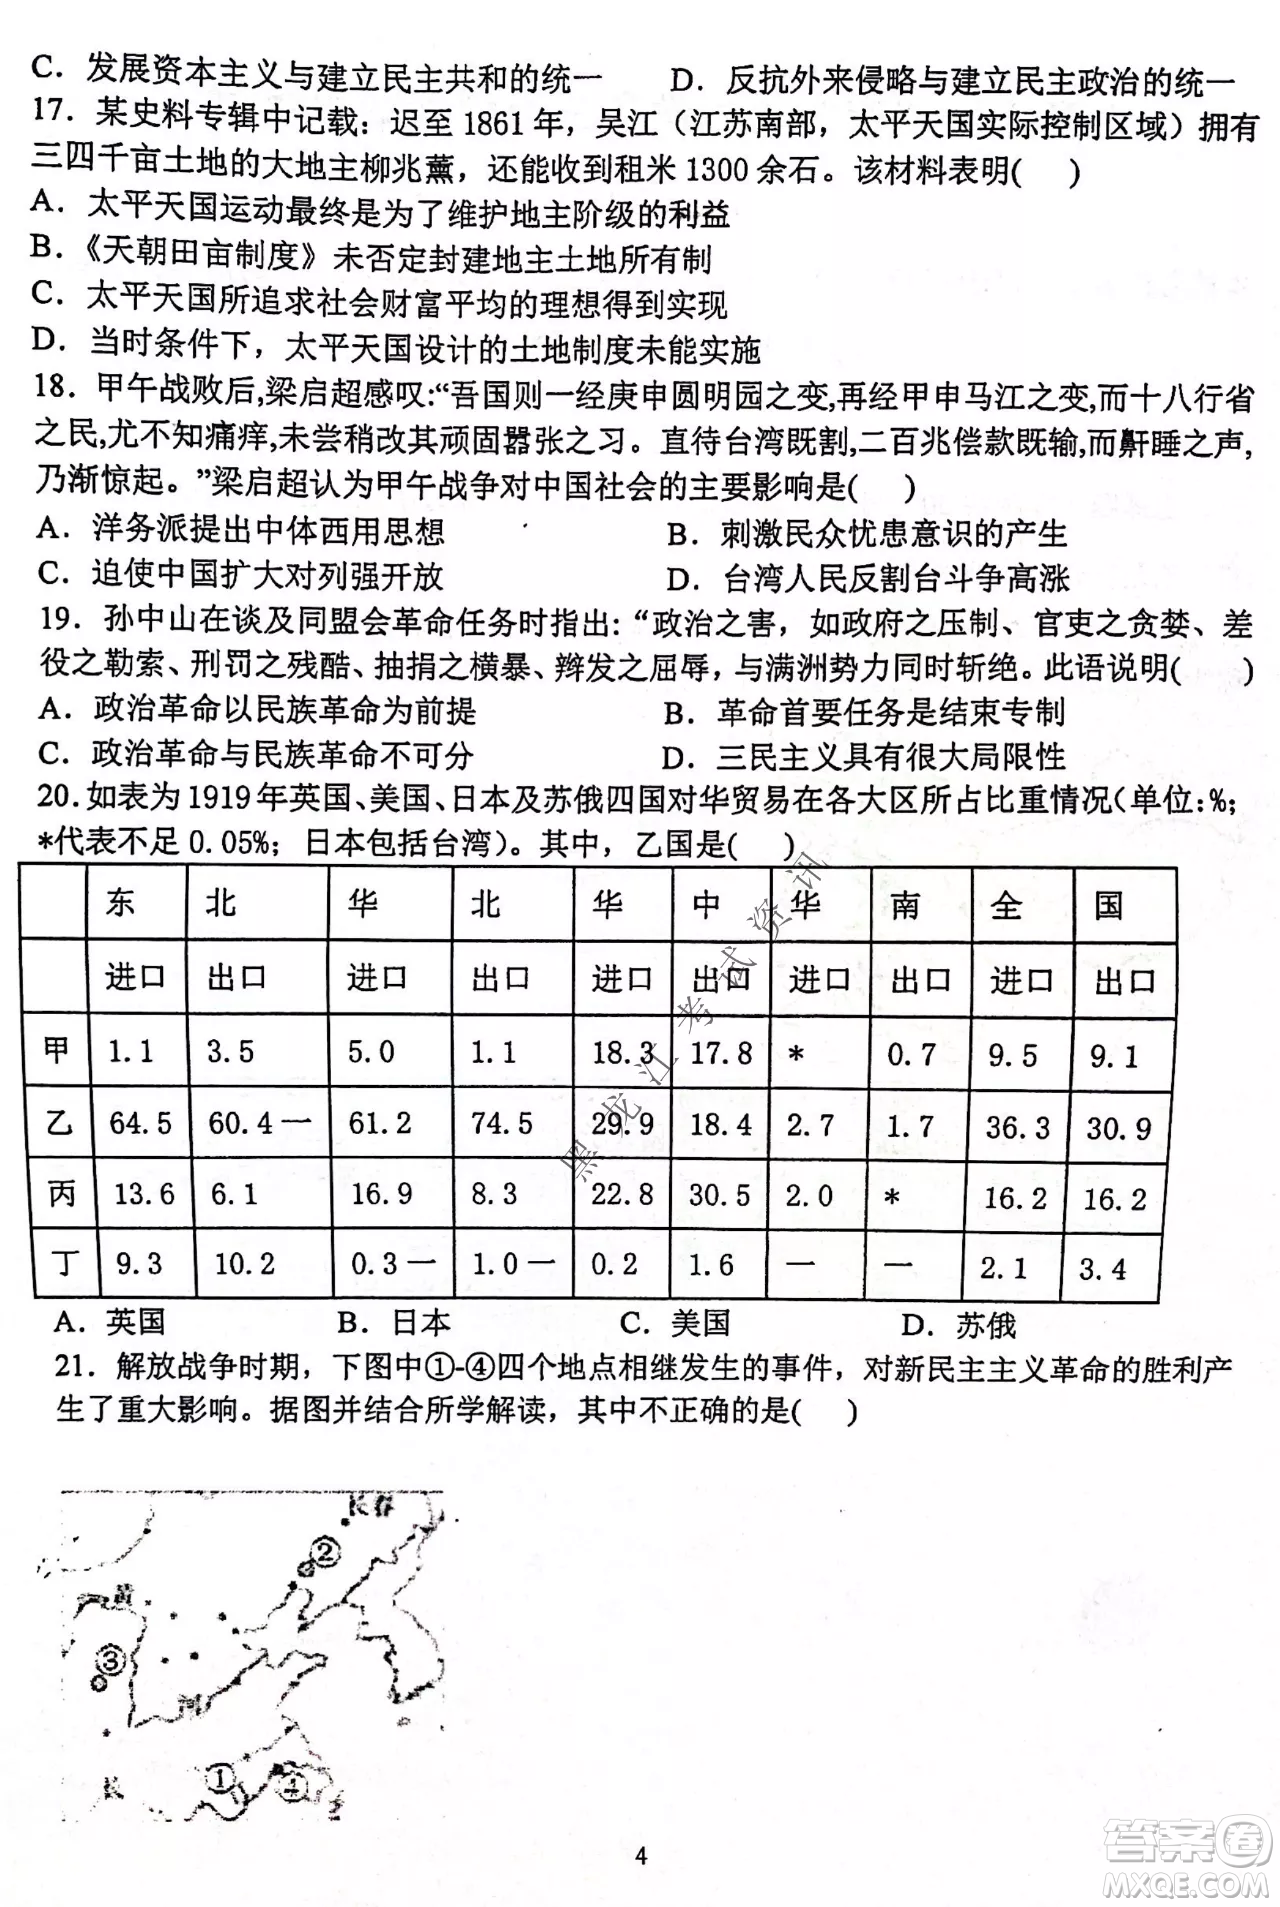 C．发展资本主义与建立民主共和的统一 D．反抗外来侵略与建立民主政治的统一
17．某史料专辑中记载：迟至1861年，吴江（江苏南部，太平天国实际控制区域）拥有
三四千亩土地的大地主柳兆薰，还能收到租米1300余石。该材料表明( )
A．太平天国运动最终是为了维护地主阶级的利益
B．《天朝田亩制度》未否定封建地主土地所有制
C．太平天国所追求社会财富平均的理想得到实现
D．当时条件下，太平天国设计的土地制度未能实施
18．甲午战败后,梁启超感叹:“吾国则一经庚申圆明园之变,再经甲申马江之变,而十八行省
之民,尤不知痛痒,未尝稍改其顽固嚣张之习。直待台湾既割,二百兆偿款既输,而鼾睡之声,
乃渐惊起。”梁启超认为甲午战争对中国社会的主要影响是( )
A．洋务派提出中体西用思想 B．刺激民众忧患意识的产生
C．迫使中国扩大对列强开放 D．台湾人民反割台斗争高涨
19．孙中山在谈及同盟会革命任务时指出：“政治之害，如政府之压制、官吏之贪婪、差
役之勒索、刑罚之残酷、抽捐之横暴、辫发之屈辱，与满洲势力同时斩绝。此语说明( )
A．政治革命以民族革命为前提 B．革命首要任务是结束专制
C．政治革命与民族革命不可分 D．三民主义具有很大局限性
20.如表为1919年英国、美国、日本及苏俄四国对华贸易在各大区所占比重情况（单位：%；
*代表不足0.05%；日本包括台湾）。其中，乙国是( )
东 北 华 北 华 中 华 南 全 国
进口 出口 进口 出口 进口 出口 进口 出口 进口 出口
甲 1.1 3.5 5.0 1.1 18.3 17.8 * 0.7 9.5 9.1
乙 64.5 60.4一 61.2 74.5 29.9 18.4 2.7 1.7 36.3 30.9
丙 13.6 6.1 16.9 8.3 22.8 30.5 2.0 * 16.2 16.2
丁 9.3 10.2 0.3一 1.0一 0.2 1.6 一 一 2.1 3.4
黑龙江考试资讯
A．英国 B．日本 C．美国 D．苏俄
21．解放战争时期，下图中①-④四个地点相继发生的事件，对新民主主义革命的胜利产
生了重大影响。据图并结合所学解读，其中不正确的是( )
长春
②
黄
③
河
长 ① ④
4
答案圈
MXQE.COM